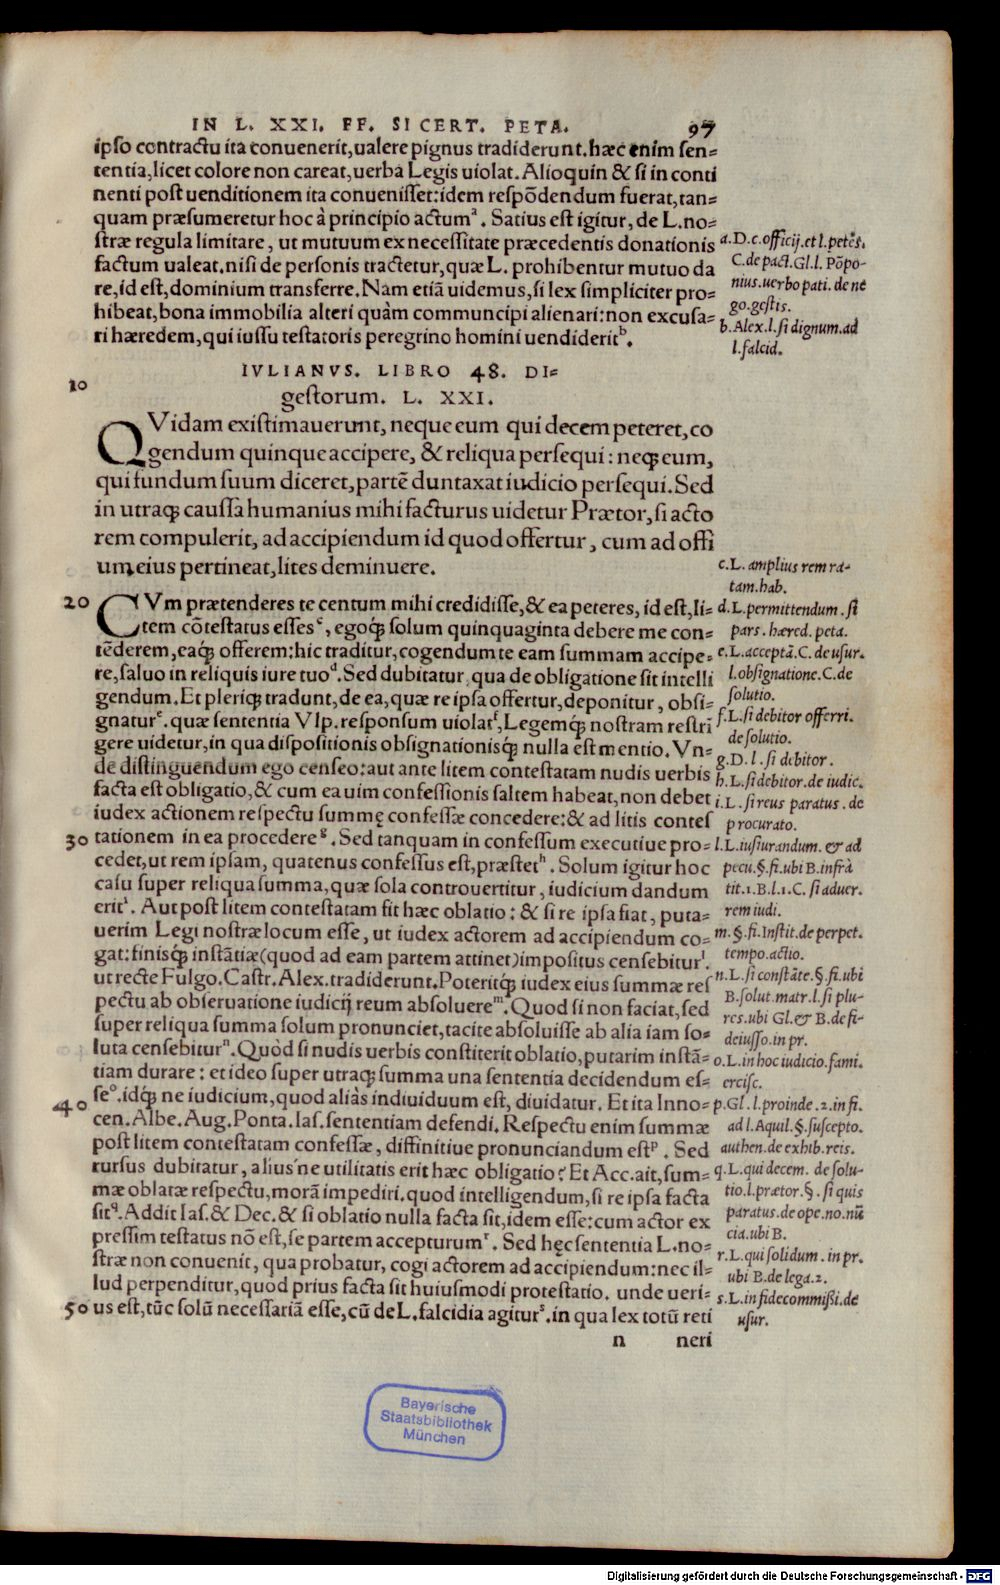 IN L. XXI. FF. SI CERT. PETA. 97
ipso contractu ita conuenerit, ualere pignus tradiderunt. hæc enim sen=
tentia, licet colore non careat, uerba Legis uiolat. Alioquin & si in conti
nenti post uenditionem ita conuenisset: idem respõdendum fuerat, tan=
quam præsumeretur hoc à principio actumᵃ. Satius est igitur, de L. no=
stræ regula limitare, ut mutuum ex necessitate præcedentis donationis
factum ualeat. nisi de personis tractetur, quæ L. prohibentur mutuo da
re, id est, dominium transferre. Nam etiã uidemus, si lex simpliciter pro=
hibeat, bona immobilia alteri quàm communcipi alienari: non excusa=
ri hæredem, qui iussu testatoris peregrino homini uendideritᵇ.
a. D. c. officij. et l. petẽs.
C. de pact. Gl. l. Põpo-
nius. uerbo pati. de ne
go. gestis.
b. Alex. l. si dignum. ad
l. falcid.
10
IVLIANVS. LIBRO 48. DI=
gestorum. L. XXI.
QVidam existimauerunt, neque eum qui decem peteret, co
gendum quinque accipere, & reliqua persequi: neq; eum,
qui fundum suum diceret, partẽ duntaxat iudicio persequi. Sed
in utraq; caussa humanius mihi facturus uidetur Prætor, si acto
rem compulerit, ad accipiendum id quod offertur, cum ad offi
um eius pertineat, lites deminuere.
20
CVm prætenderes te centum mihi credidisse, & ea peteres, id est, li=
tem cõtestatus essesᶜ, egoq́; solum quinquaginta debere me con=
tẽderem, eaq́; offerem: hic traditur, cogendum te eam summam accipe=
re, saluo in reliquis iure tuoᵈ. Sed dubitatur, qua de obligatione sit intelli
gendum. Et pleriq; tradunt, de ea, quæ re ipsa offertur, deponitur, obsi=
gnaturᵉ. quæ sententia Vlp. responsum uiolatᶠ, Legemq́; nostram restri
gere uidetur, in qua dispositionis obsignationisq́; nulla est mentio. Vn=
de distinguendum ego censeo: aut ante litem contestatam nudis uerbis
facta est obligatio, & cum ea uim confessionis saltem habeat, non debet
iudex actionem respectu summę confessæ concedere: & ad litis contes
30 tationem in ea procedereᵍ. Sed tanquam in confessum executiue pro=
cedet, ut rem ipsam, quatenus confessus est, præstetʰ. Solum igitur hoc
casu super reliqua summa, quæ sola controuertitur, iudicium dandum
eritⁱ. Aut post litem contestatam fit hæc oblatio: & si re ipsa fiat, puta=
uerim Legi nostræ locum esse, ut iudex actorem ad accipiendum co=
gat: finisq́; instãtiæ (quod ad eam partem attinet) impositus censebiturˡ.
ut recte Fulgo. Castr. Alex. tradiderunt. Poteritq́; iudex eius summæ res
pectu ab obseruatione iudicij reum absoluereᵐ. Quod si non faciat, sed
super reliqua summa solum pronunciet, tacite absoluisse ab alia iam so=
luta censebiturⁿ. Quòd si nudis uerbis constiterit oblatio, putarim instã=
tiam durare: et ideo super utraq; summa una sententia decidendum es=
40 seᵒ. idq́; ne iudicium, quod aliàs indiuiduum est, diuidatur. Et ita Inno=
cen. Albe. Aug. Ponta. Ias. sententiam defendi. Respectu enim summæ
post litem contestatam confessæ, diffinitiue pronunciandum estᵖ. Sed
rursus dubitatur, alius'ne utilitatis erit hæc obligatio? Et Acc. ait, sum=
mæ oblatæ respectu, morã impediri. quod intelligendum, si re ipsa facta
sitq. Addit Ias. & Dec. & si oblatio nulla facta sit, idem esse: cum actor ex
pressim testatus nõ est, se partem accepturumʳ. Sed hęc sententia L. no=
stræ non conuenit, qua probatur, cogi actorem ad accipiendum: nec il=
lud perpenditur, quod prius facta sit huiusmodi protestatio. unde ueri=
50 us est, tũc solũ necessariã esse, cũ de L. falcidia agiturˢ. in qua lex totũ reti
n neri
c. L. amplius rem ra-
tam. hab.
d. L. permittendum. si
pars. hæred. peta.
e. L. acceptã. C. de usur.
l. obsignatione. C. de
solutio.
f. L. si debitor offerri.
de solutio.
g. D. l. si debitor.
h. L. si debitor. de iudic.
i. L. si reus paratus. de
procurato.
l. L. iusiurandum. & ad
pecu. §. fi. ubi B. infrà
tit. 1. B. l. 1. C. si aduer.
rem iudi.
m. §. fi. Instit. de perpet.
tempo. actio.
n. L. si constãte. §. fi. ubi
B. solut. matr. l. si plu-
res. ubi Gl. & B. de fi-
deiusso. in pr.
o. L. in hoc iudicio. fami.
ercisc.
p. Gl. l. proinde. 2. in fi.
ad l. Aquil. §. suscepto.
authen. de exhib. reis.
q. L. qui decem. de solu-
tio. l. prætor. §. si quis
paratus. de ope. no. nũ
cia. ubi B.
r. L. qui solidum. in pr.
ubi B. de lega. 2.
s. L. in fidecommissi. de
usur.
Bayerische
Staatsbibliothek
München
Digitalisierung gefördert durch die Deutsche Forschungsgemeinschaft - DFG